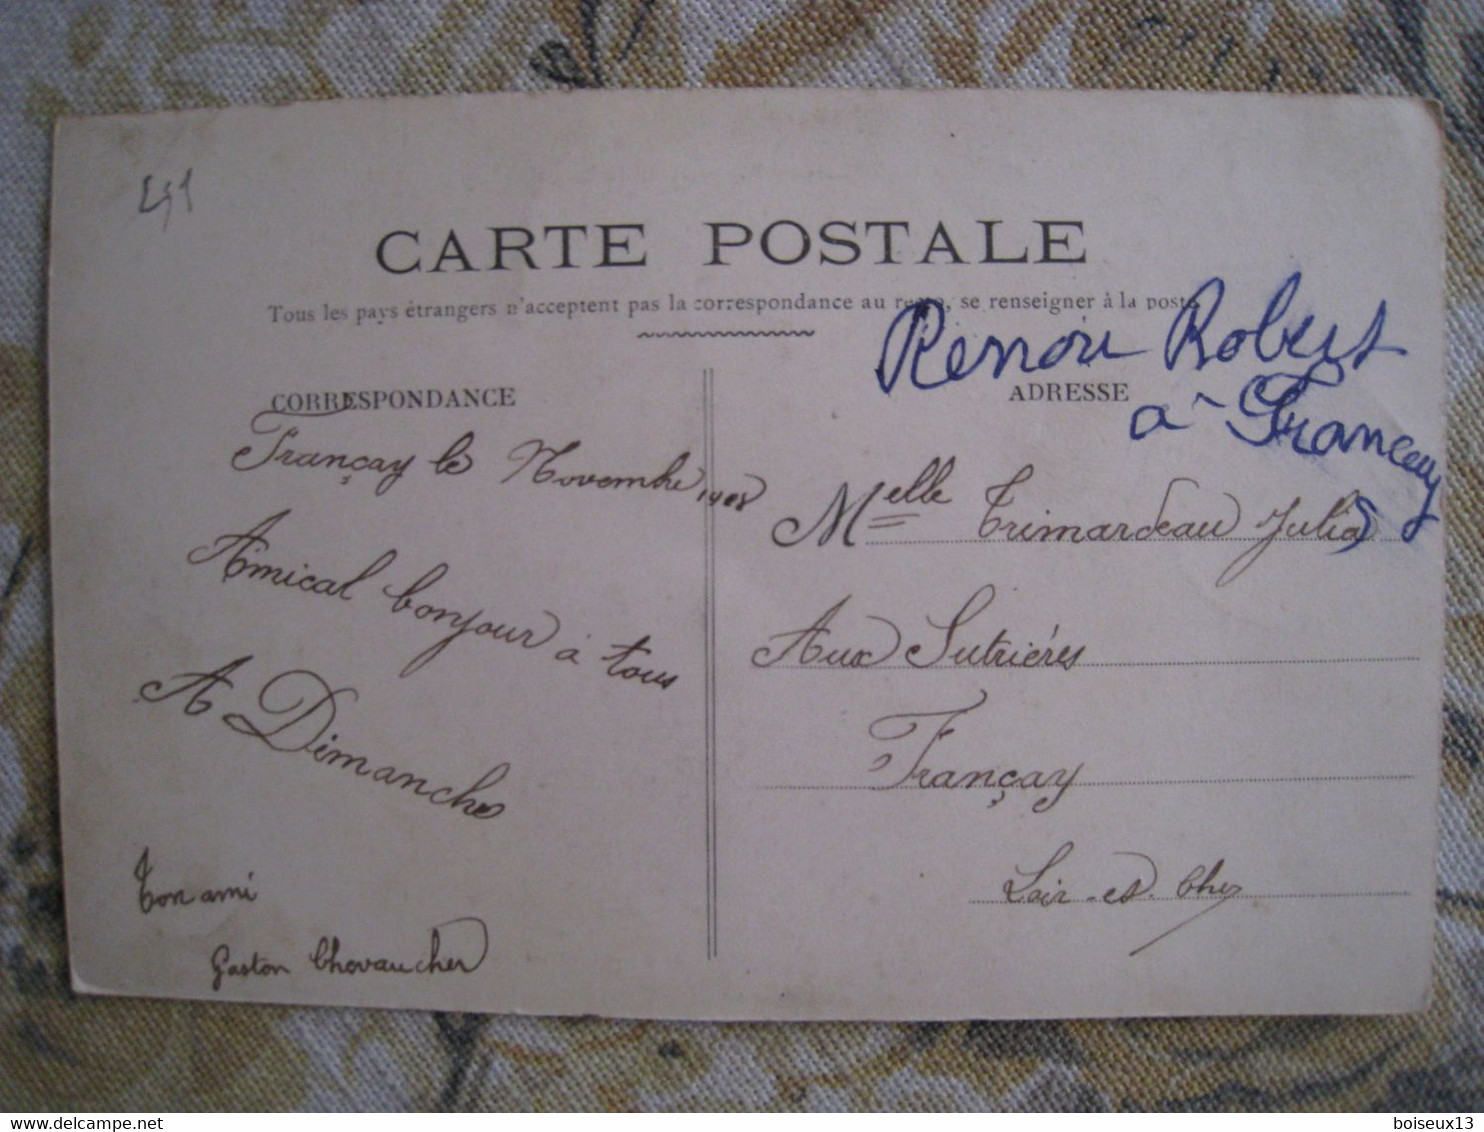 CARTE POSTALE
Tous les pays étrangers n'acceptent pas la correspondance au recto, se renseigner à la poste
Renou Robert
à Françay
CORRESPONDANCE
ADRESSE
Françay le Novembre 1908
Amical bonjour à tous
A Dimanche
Ton ami
Gaston Chovaucher
Melle Trimardeau Julia
Aux Sutrières
Françay
Loir-et-Cher
boiseux13